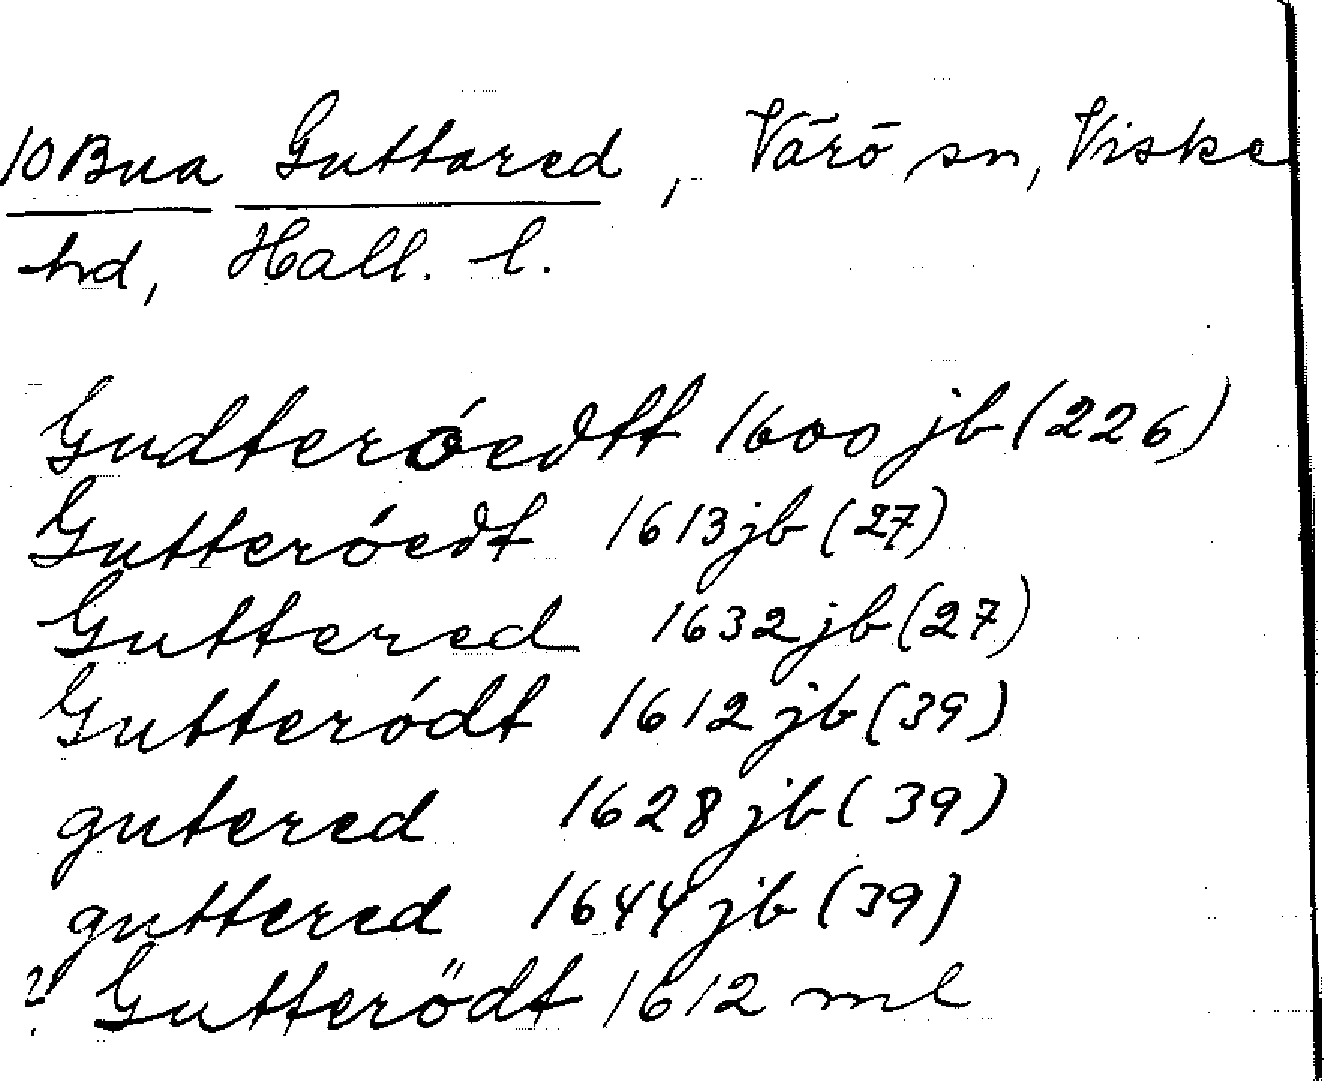 10 Bua Guttared, Värö sn, Viske
hd, Hall. l.
Gudteróedtt 1600 jb (226)
Gutteróedt 1613 jb (27)
Guttered 1632 jb (27)
Gutteródt 1612 jb (39)
gutered 1628 jb (39)
guttered 1644 jb (39)
? Gutterödt 1612 ml